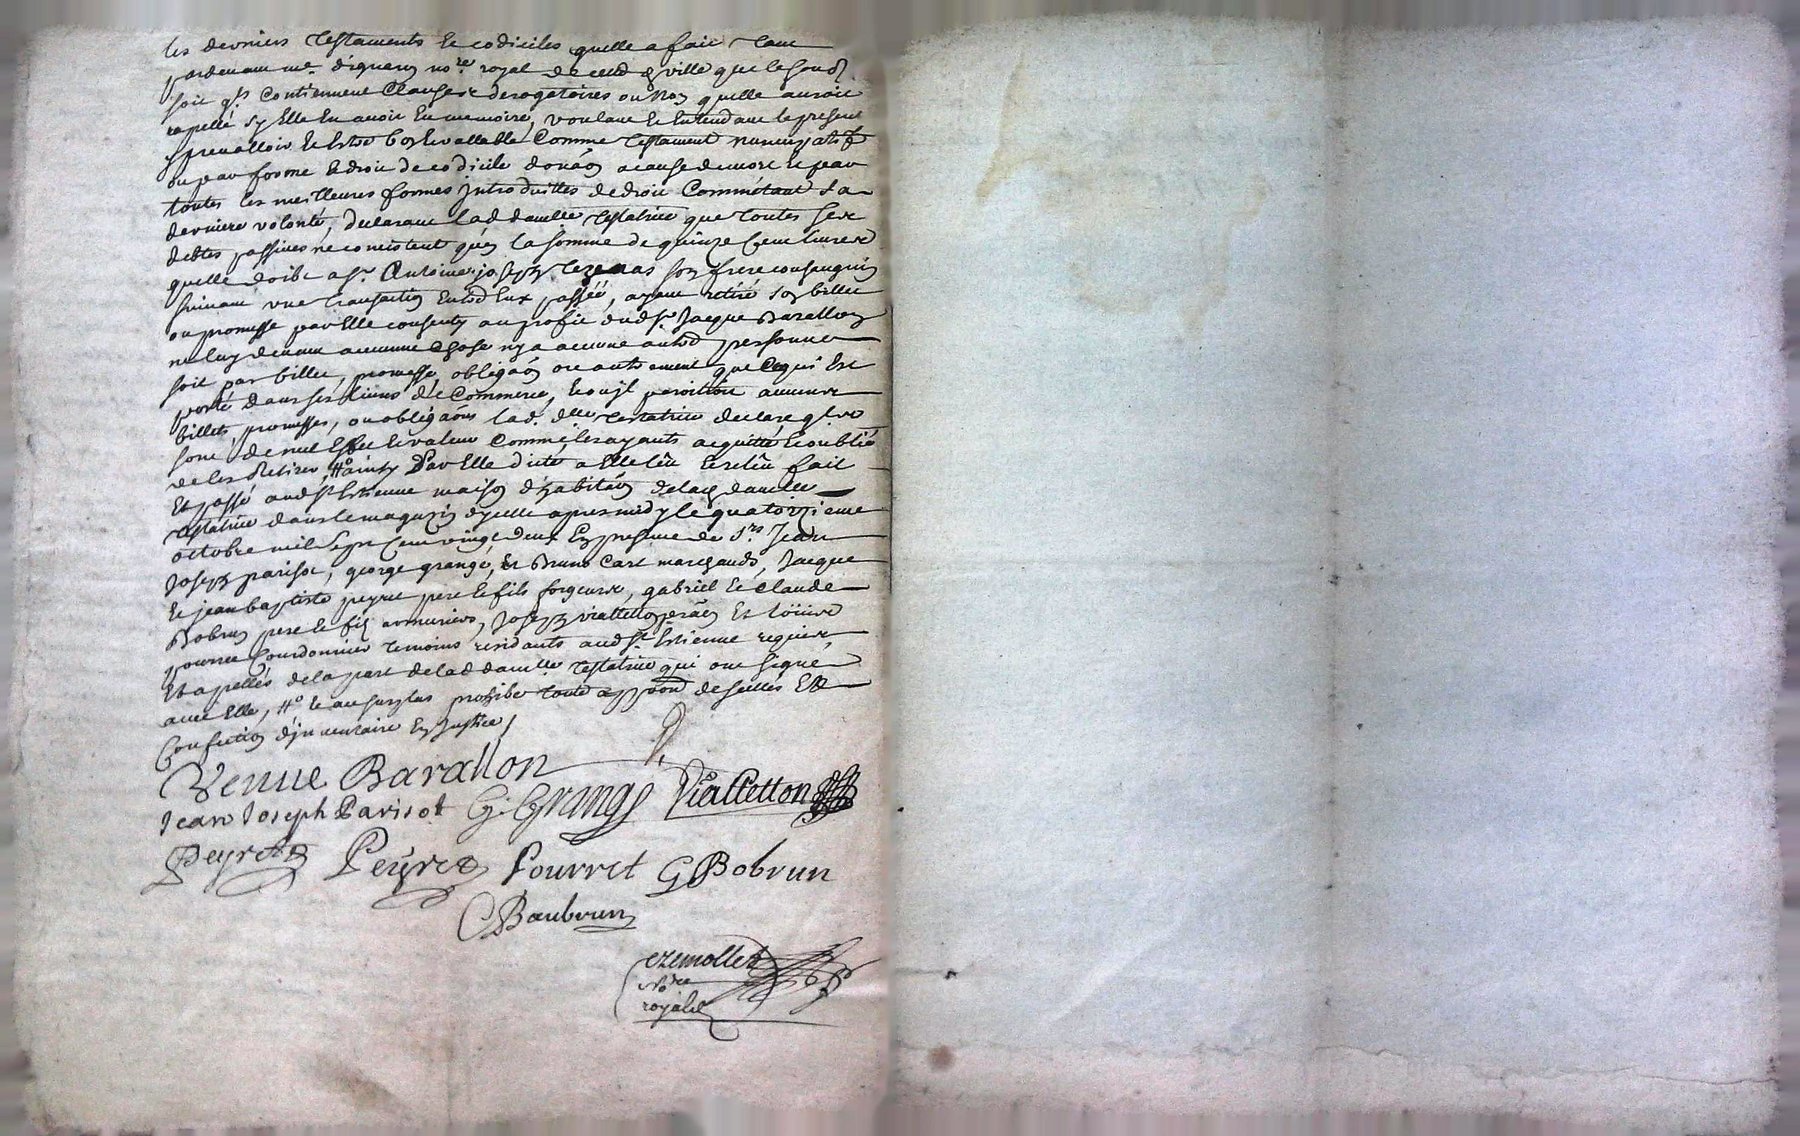 les derniers testaments et codiciles qu'elle a fait tant
pardevant me. no.re royal de cette ville que le
soit qls contiennent clauses derogatoires ou non quelle auroit
rapellé sy elle en avoit en memoire, voulant et entendant le present
prevalloir et estre bon et vallable comme testament nuncupatif
ou par forme et droit de codicile donāon a cause de mort et par
toutes les meilleures formes introduittes de droit Commétant sa
derniere volonté, declarant lad. damlle testatrice que toutes ses
debtes passives ne consistent qu'en la somme de quinze Cent livres
quelle doibt a sr. Antoine joseph tezenas son frere consanguin
suivant une transaction entr'eux passée, ayant retiré son billet
ou promesse par elle consenty au profit dud. sr. Jacque Barallon
ne luy devant aucunne chose ny a aucune autre personne
soit par billet, promesse obligāon ou autrement que ce qui est
porté dans ses livres de Commerce, et ou il paroitroit aucuns
billets, promesses, ou obligāons lad. dlle testatrice declare qls
sont de nul effet et valeur comme les ayants acquitté et oublié
de les retirer, Ho ainsy par elle dicté a elle leu et releu fait
et passé aud. st. Estienne maison d'habitāon de lad. damlle
testatrice dans le magazin d'ycelle apres midy le quatorzieme
octobre mil sept cent vingt deux en presence de srs. Jean
Joseph parisot, george grange, et Bruno Cart marchands, Jacque
et jean baptiste peyret pere et fils forgeurs, gabriel et claude
Bobrun pere et fils armuriers, Joseph vialletton et
pourret Courdonnier temoins residants aud. st. Estienne requis
et apellés de la part de lad. damlle testatrice qui ont signé
avec elle, Ho et au surplus prohibé toute de scellés et
Confection d'inventaire en justice,
Venue Barallon
Jean Joseph Parisot G. Grange Vialletton
Peyret Peyret Pourret G Bobrun
C Baubrun
ezemollet
no.re
royal